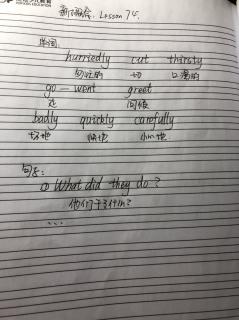 Lesson 74.
单词:
hurriedly cut thirsty
匆忙的 切 口渴的
go — went greet
去 问候
badly quickly carefully
坏地 快地 小心地
句子:
① What did they do?
他们干了什么?
...